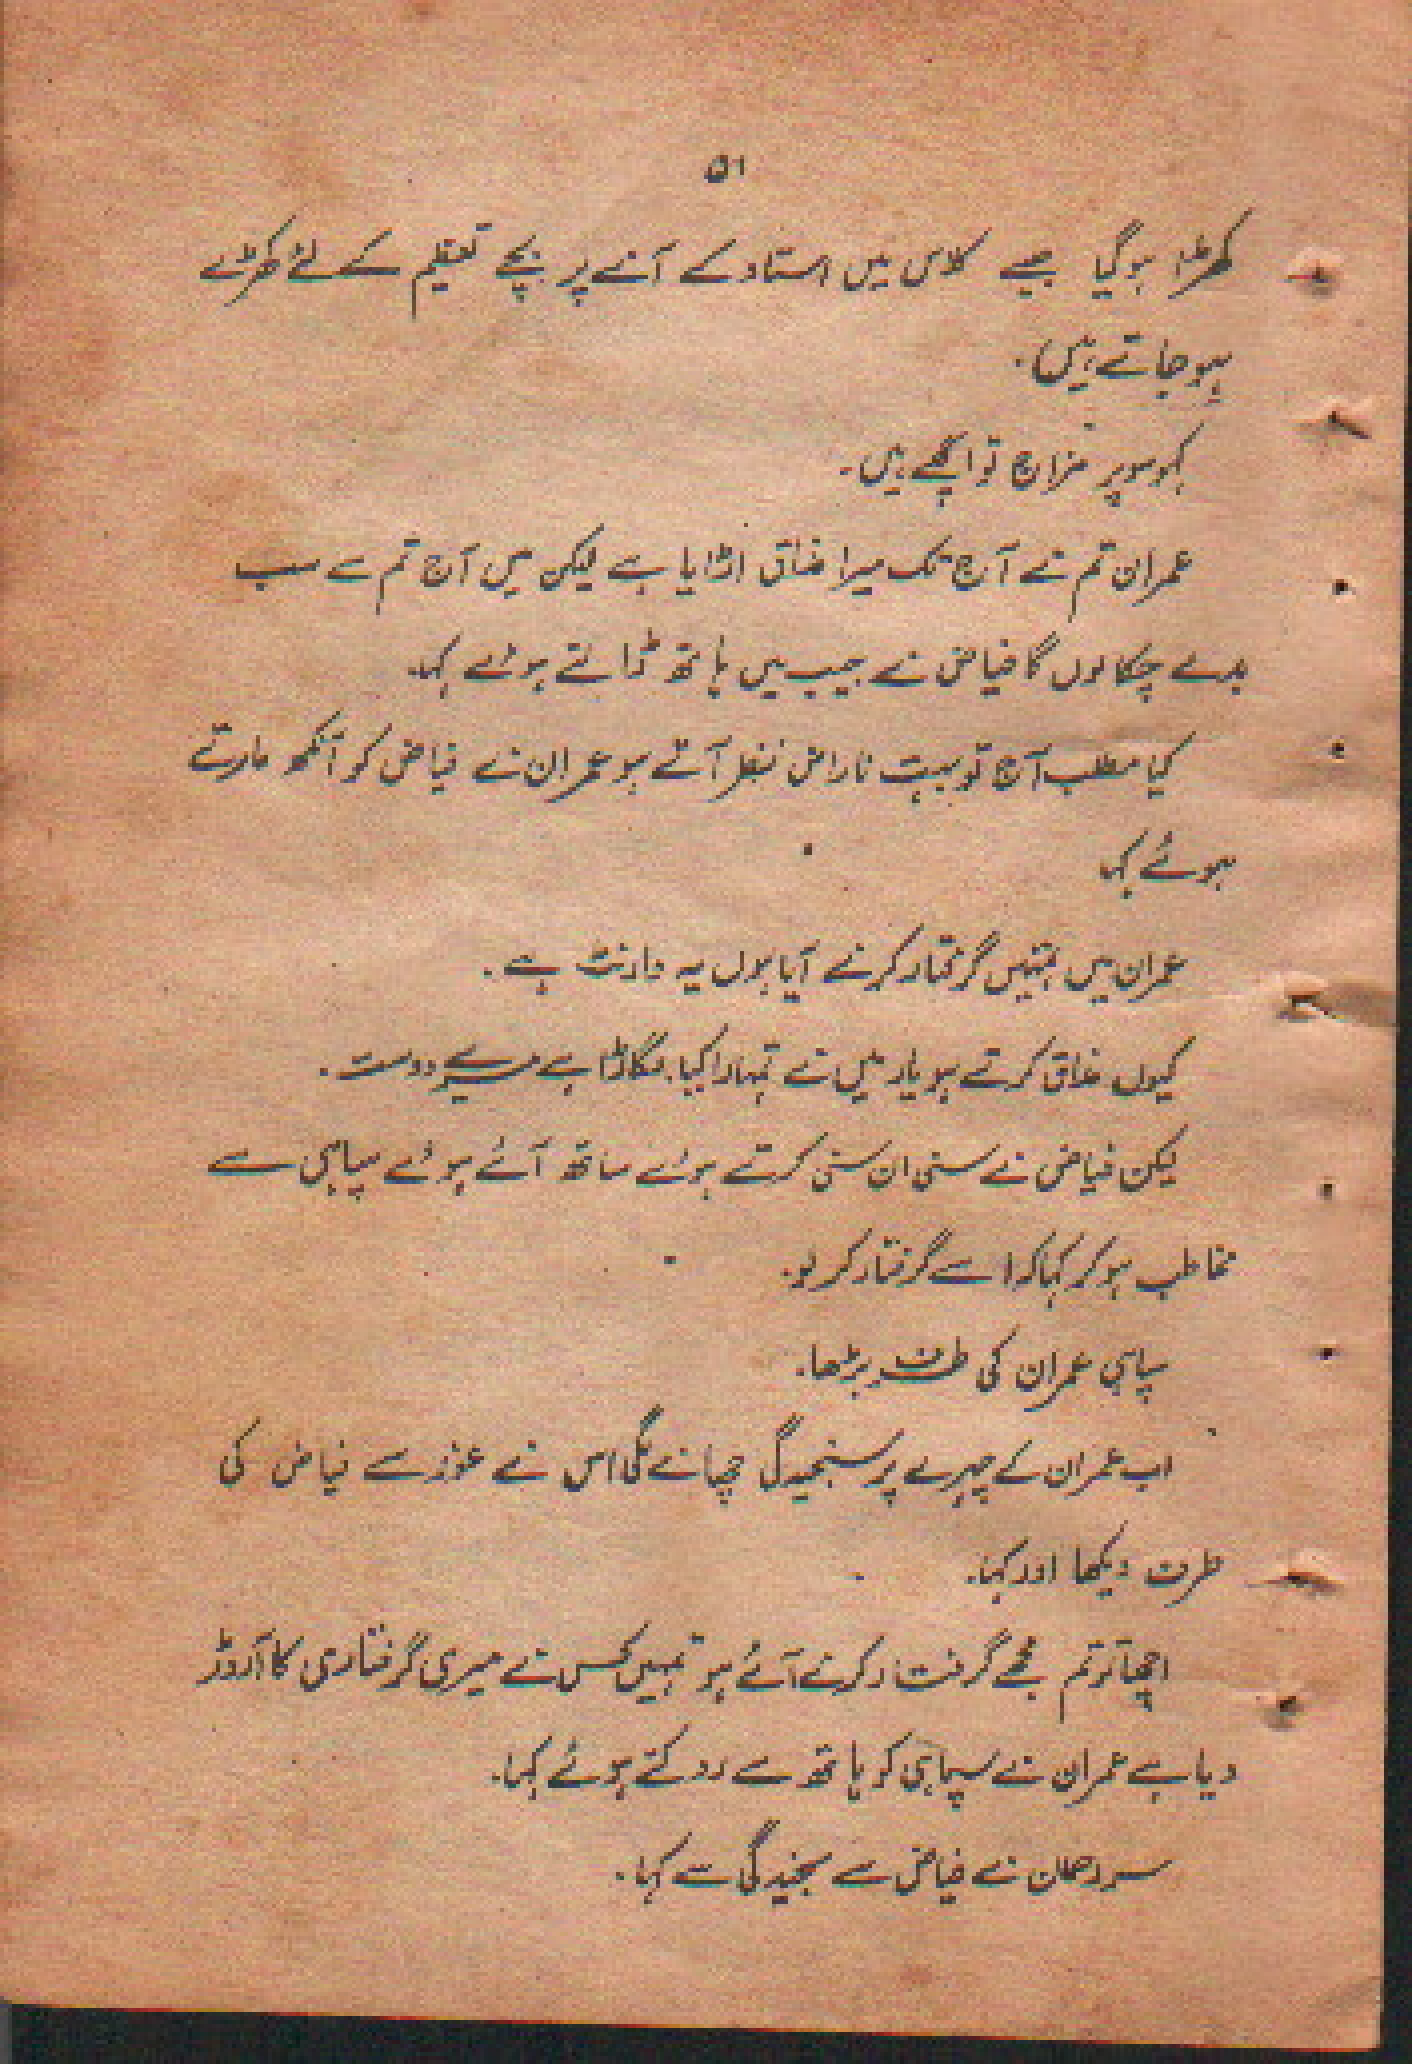 ۵۱
کھڑا ہوگیا جیسے کلاس میں استاد کے آنے پر بچے تعظیم کے لئے کھڑے
ہوجاتے ہیں۔
کہو سوپر مزاج تو اچھے ہیں۔
عمران تم نے آج تک میرا مذاق اڑایا ہے لیکن میں آج تم سے سب
بدلے چکا لوں گا فیاض نے جیب میں ہاتھ ڈالتے ہوئے کہا۔
کیا مطلب آج تو بہت ناراض نظر آتے ہو عمران نے فیاض کو آنکھ مارتے
ہوئے کہا
عمران میں تمہیں گرفتار کرنے آیا ہوں یہ وارنٹ ہے۔
کیوں مذاق کرتے ہو یار میں نے تمہارا کیا بگاڑا ہے میرے دوست۔
لیکن فیاض نے سنی ان سنی کرتے ہوئے ساتھ آئے ہوئے سپاہی سے
مخاطب ہو کر کہا کہ اسے گرفتار کر لو۔
سپاہی عمران کی طرف بڑھا۔
اب عمران کے چہرے پر سنجیدگی چھانے لگی اس نے غور سے فیاض کی
طرف دیکھا اور کہا۔
اچھا تو تم مجھے گرفتار کرنے آئے ہو تمہیں کس نے میری گرفتاری کا آرڈر
دیا ہے عمران نے سپاہی کو ہاتھ سے روکتے ہوئے کہا۔
سر رحمان نے فیاض سے سنجیدگی سے کہا۔